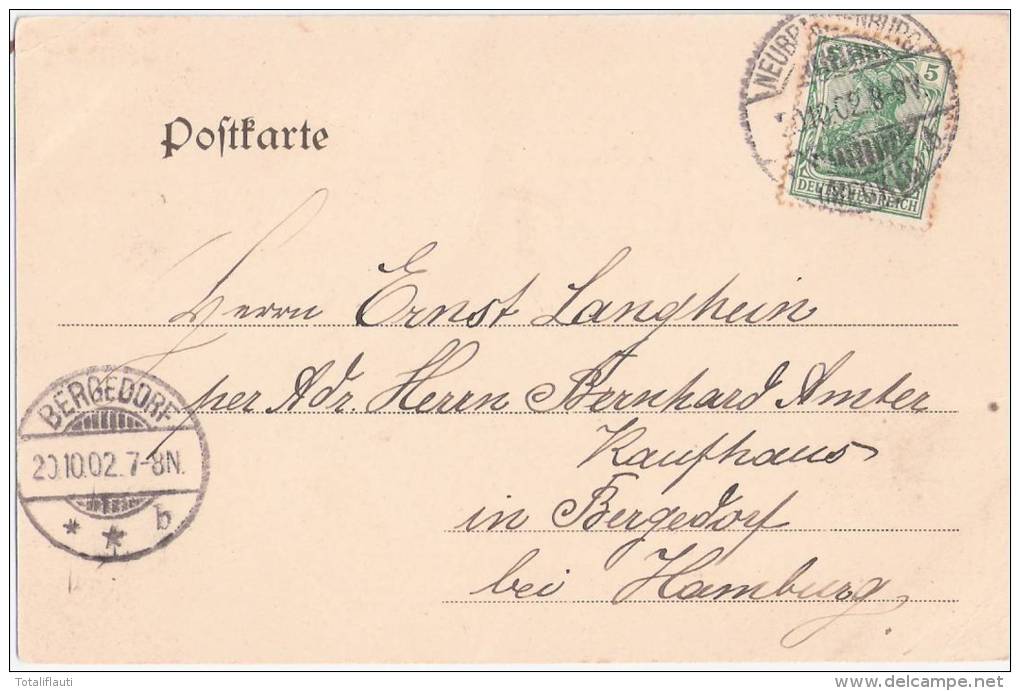 Postkarte
5
20.10.02.8-9V.
DEUTSCHES REICH
Herrn Ernst Langhein
per Adr. Herrn Bernhard Amter
Kaufhaus
in Bergedorf
bei Hamburg
BERGEDORF
20.10.02.7-8N.
* * b
Totaliflauti
delcampe.net